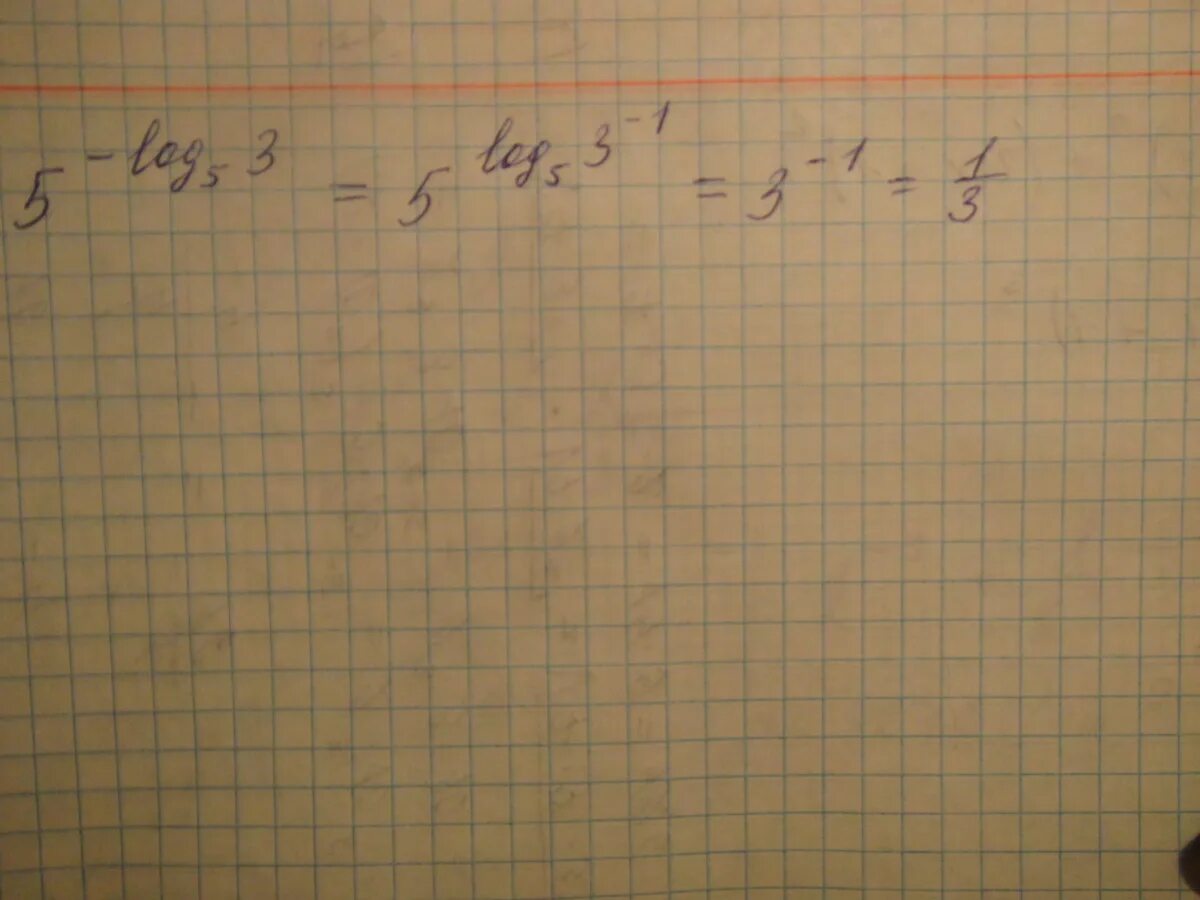 5^{-log_5 3} = 5^{log_5 3^{-1}} = 3^{-1} = \frac{1}{3}